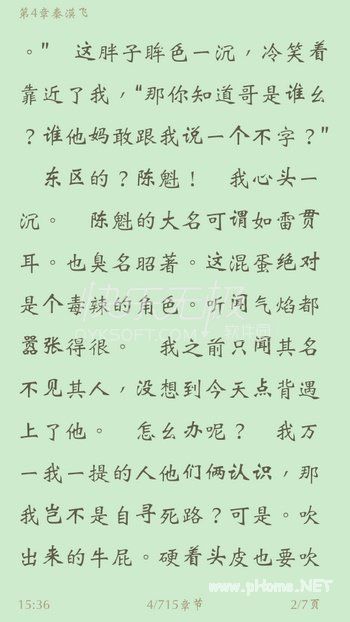 第4章秦漠飞
。” 这胖子眸色一沉，冷笑着
靠近了我，“那你知道哥是谁幺
？谁他妈敢跟我说一个不字？”
东区的？陈魁！ 我心头一
沉。 陈魁的大名可谓如雷贯
耳。也臭名昭著。这混蛋绝对
是个毒辣的角色。听闻气焰都
嚣张得很。 我之前只闻其名
不见其人，没想到今天点背遇
上了他。 怎幺办呢？ 我万
一我一提的人他们俩认识，那
我岂不是自寻死路？可是。吹
出来的牛屁。硬着头皮也要吹
15:36 4/715章节 2/7页
快乐无极
OYKSOFT.COM 软件园
www.pHome.NET